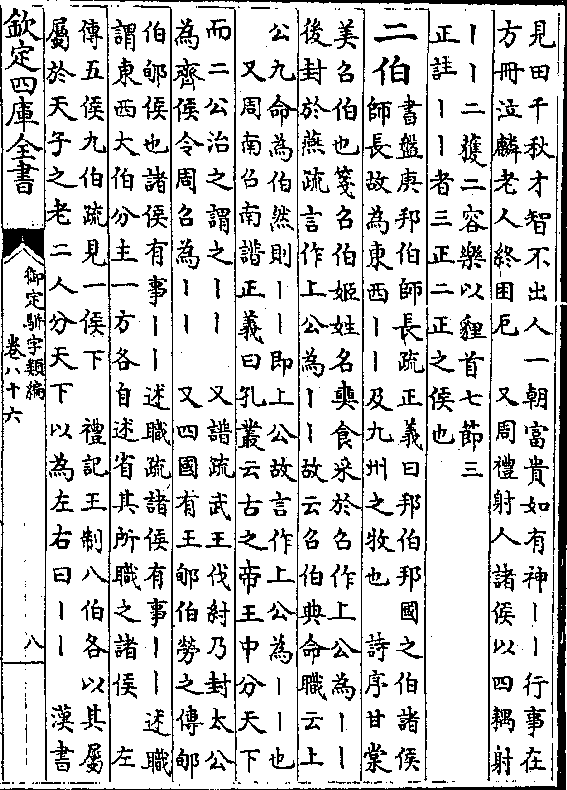 見田千秋才智不出人一朝富貴如有神丨丨行事在
方冊泣麟老人終困厄　又周禮射人諸侯以四耦射
丨丨二獲二容樂以貍首七節三
正註丨丨者三正二正之侯也
二伯
書盤庚邦伯師長疏正義曰邦伯邦國之伯諸侯
師長故為東西丨丨及九州之牧也　詩序甘棠
美召伯也箋召伯姬姓名奭食采於召作上公為丨丨
後封於燕疏言作上公為丨丨故云召伯典命職云上
公九命為伯然則丨丨即上公故言作上公為丨丨也
又周南召南譜正義曰孔叢云古之帝王中分天下
而二公治之謂之丨丨　又譜疏武王伐紂乃封太公
為齊侯令周召為丨丨　又四國有王郇伯勞之傳郇
伯郇侯也諸侯有事丨丨述職疏諸侯有事丨丨述職
謂東西大伯分主一方各自述省其所職之諸侯　左
傳五侯九伯疏見一侯下　禮記王制八伯各以其屬
屬於天子之老二人分天下以為左右曰丨丨　漢書
欽定四庫全書
御定駢字類編
卷八十六
八